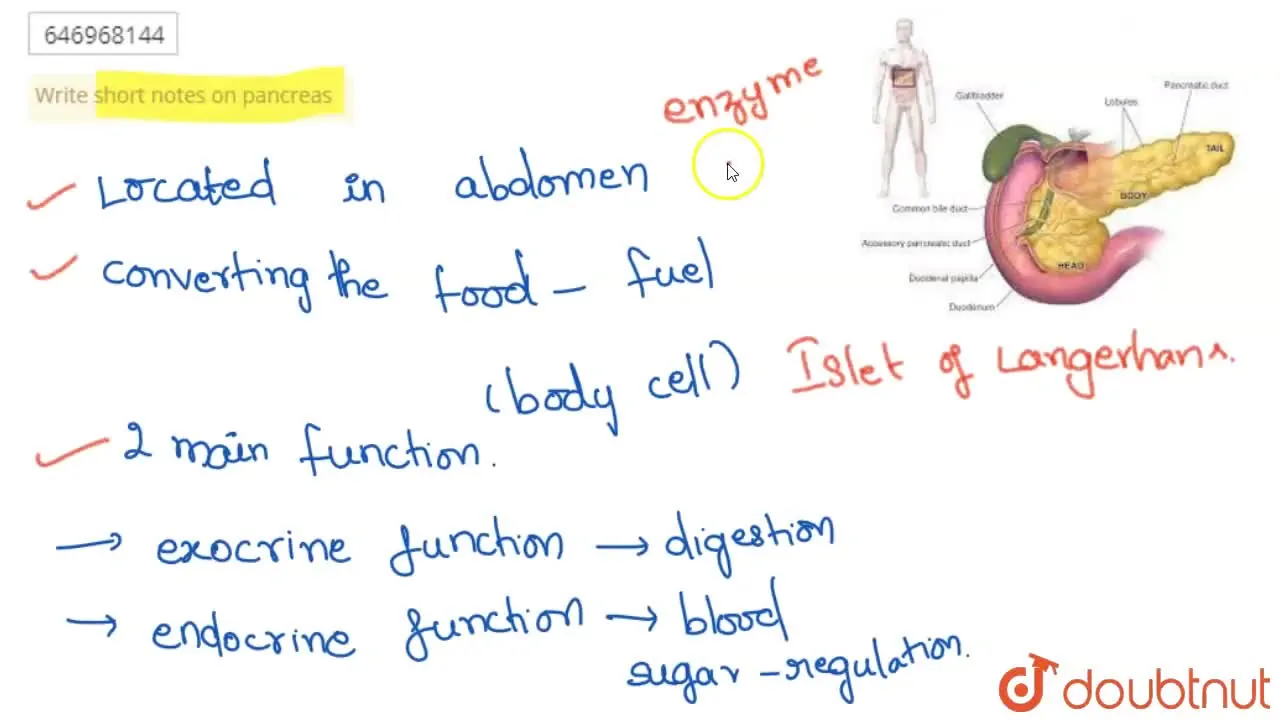 646968144
Write short notes on pancreas
enzyme
Located in abdomen
converting the food - fuel
(body cell)
Islet of Langerhans.
2 main function.
→ exocrine function → digestion
→ endocrine function → blood
sugar - regulation.
Gallbladder
Lobules
Pancreatic duct
TAIL
BODY
Common bile duct
Accessory pancreatic duct
HEAD
Duodenal papilla
Duodenum
doubtnut